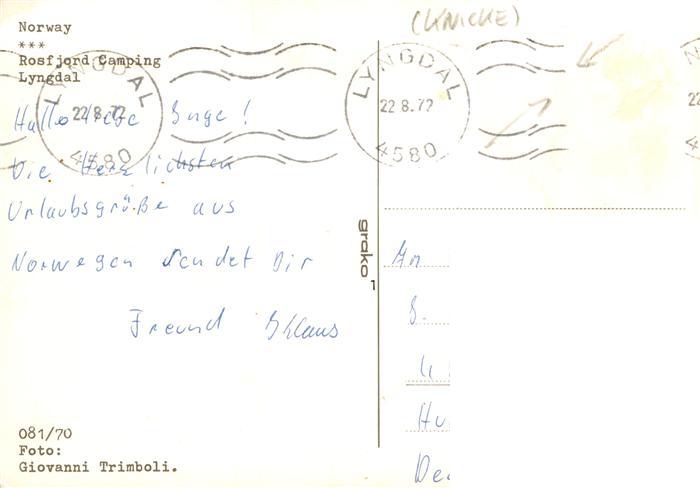 (KNICKE)
Norway
***
Rosfjord Camping
Lyngdal
LYNGDAL
22.8.72
4580
LYNGDAL
22.8.72
4580
Hallo liebe !
Die Herzlichsten
Urlaubsgrüße aus
Norwegen sendet Dir
Freund Klaus
grako
1
An
081/70
Foto:
Giovanni Trimboli.